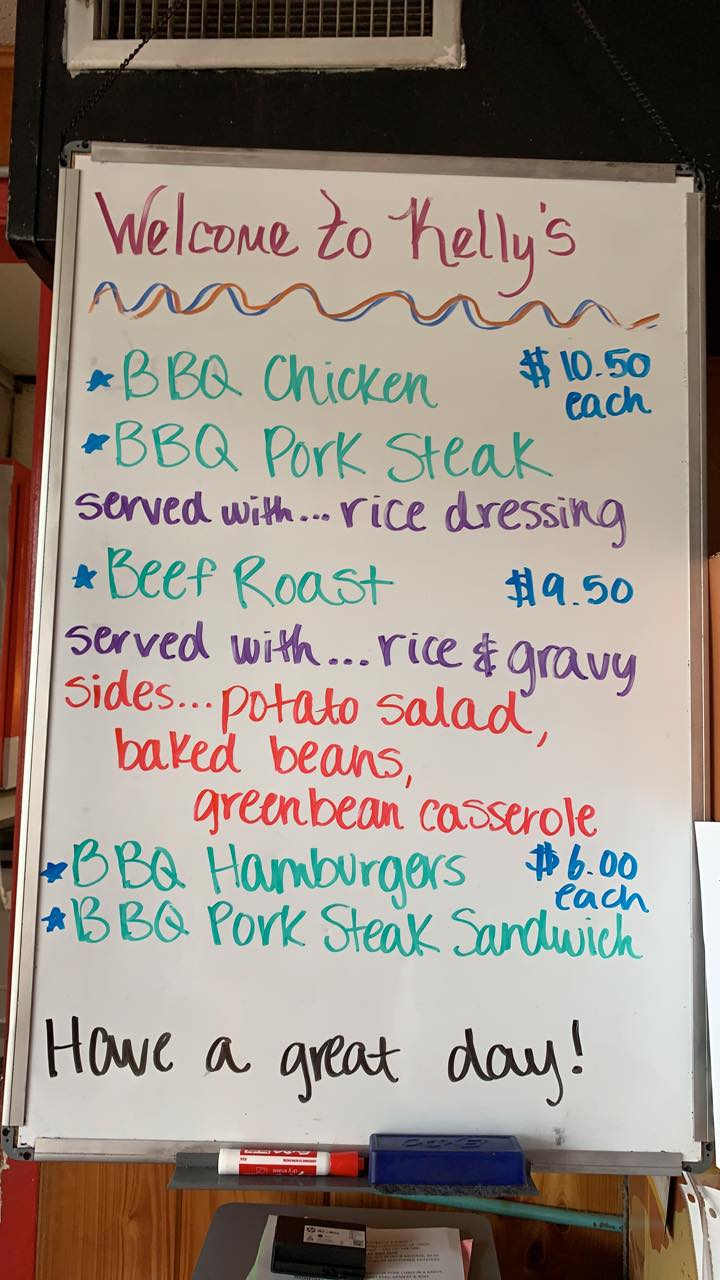 Welcome to Kelly's
BBQ Chicken $10.50
each
BBQ Pork Steak
served with... rice dressing
Beef Roast $9.50
served with... rice & gravy
sides... potato salad,
baked beans,
greenbean casserole
BBQ Hamburgers $6.00
each
BBQ Pork Steak Sandwich
Have a great day!
EXPO